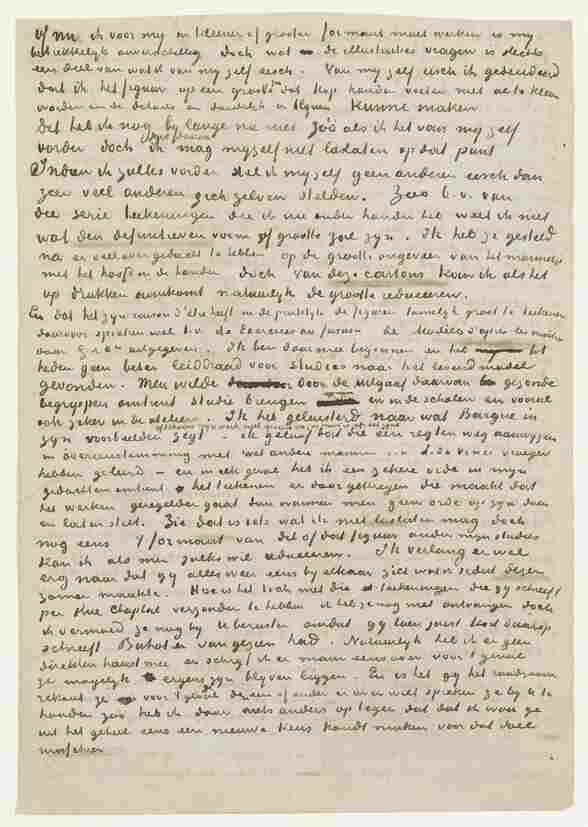 Of nu ik voor mij in kleiner of grooter formaat moet werken is mij
betrekkelijk onverschillig doch wat de illustraties vragen is slechts
een deel van wat ik van mij zelf eisch. Van mij zelf eisch ik gedecideerd
dat ik het figuur op een grootte dat kop handen voeten niet al te klein
worden en de details en duidelijk blijven kunne maken
Dat heb ik nog bij lange na niet zóó als ik het voor mij zelf
vorder doch ik mag mijzelf niet loslaten op dat punt
Indien ik zulks vorder stel ik mijzelf geen anderen eisch dan
zeer veel anderen zich zelven stelden. Zoo b.v. van
die serie teekeningen die ik nu onder handen heb weet ik niet
wat den definitieven vorm of grootte zal zijn. Ik heb ze gesteld
na er veel over gedacht te hebben op de grootte ongeveer van het mannetje
met het hoofd in de handen doch van deze cartons kan ik als het
op drukken aankomt natuurlijk de grootte reduceeren.
En dat het zijn raison d'etre heeft in de praktijk de figuren tamelijk groot te teekenen
daarvoor spreken wel b.v. de Exercices au fusain de Modèles d'après les maîtres
door uitgegeven. Ik ben daarmee begonnen en heb tot
heden geen beter leiddraad voor studies naar het levend model
gevonden. Men wilde door de uitgaaf daarvan gezonde
begrippen omtrent studie brengen en in de scholen en vooral
ook zeker in de ateliers. Ik heb geluisterd naar wat Bargue in
zijn voorbeelden zegt - ik geloof dat die een regten weg aanwijzen
in overeenstemming met wat andere mannen vroeger
hebben geleerd - en in elk geval heb ik een zekere orde in mijn
gedachten omtrent het teekenen er door gekregen die maakt dat
het werken geregelder gaat dan wanneer men geen orde op zijn doen
en laten stelt. Zie dat is iets wat ik niet loslaten mag doch
nog eens 't formaat van dit of dat figuur onder mijn studies
kan ik als men zulks wil reduceeren. Ik verlang er wel
erg naar dat gij alles weer eens bij elkaar ziet wat ik sedert dezen
zomer maakte. Hoe is het toch met die teekeningen die gij schreeft
per Rue Chaptal verzonden te hebben ik heb ze nog niet ontvangen doch
ik vermoed ze nog bij U berusten omdat gij laen juist kort daarop
schreeft Buhot er van gezien had. Natuurlijk heb ik er geen
direkten haast mee en schrijf ik er maar eens over voor 't geval
ze mogelijk ergens zijn blijven liggen. En is het gij het raadzaam
rekent ze voor 't geval dezen of ander er over wilt spreken ze bij U te
houden zoo heb ik daar niets anders op tegen dat dat ik wou ge
uit het geheel eens een nieuwe keus kondt maken voor dat doel
misschien